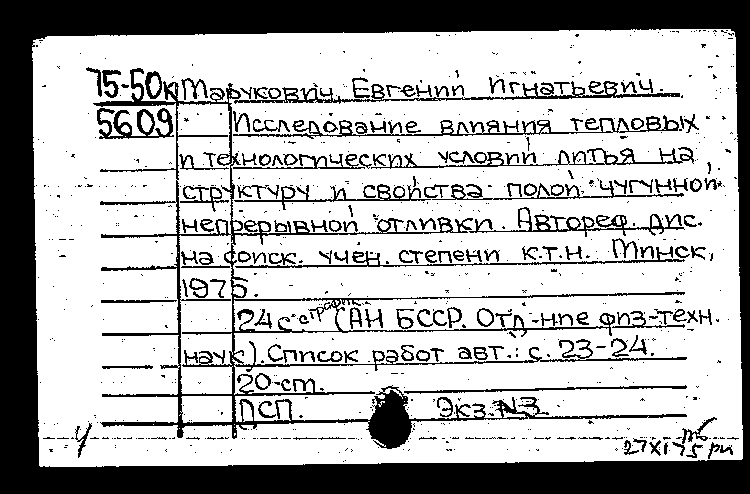 75-50к Марукович, Евгений Игнатьевич.
5609 Исследование влияния тепловых
и технологических условий литья на
структуру и свойства полой чугунной
непрерывной отливки. Автореф. дис.
на соиск. учен. степени к.т.н. Минск,
1975.
24 с. с график. (АН БССР. Отд-ние физ-техн.
наук). Список работ авт.: с. 23-24.
20-ст.
ДСП. Экз. №3
27 XI 75